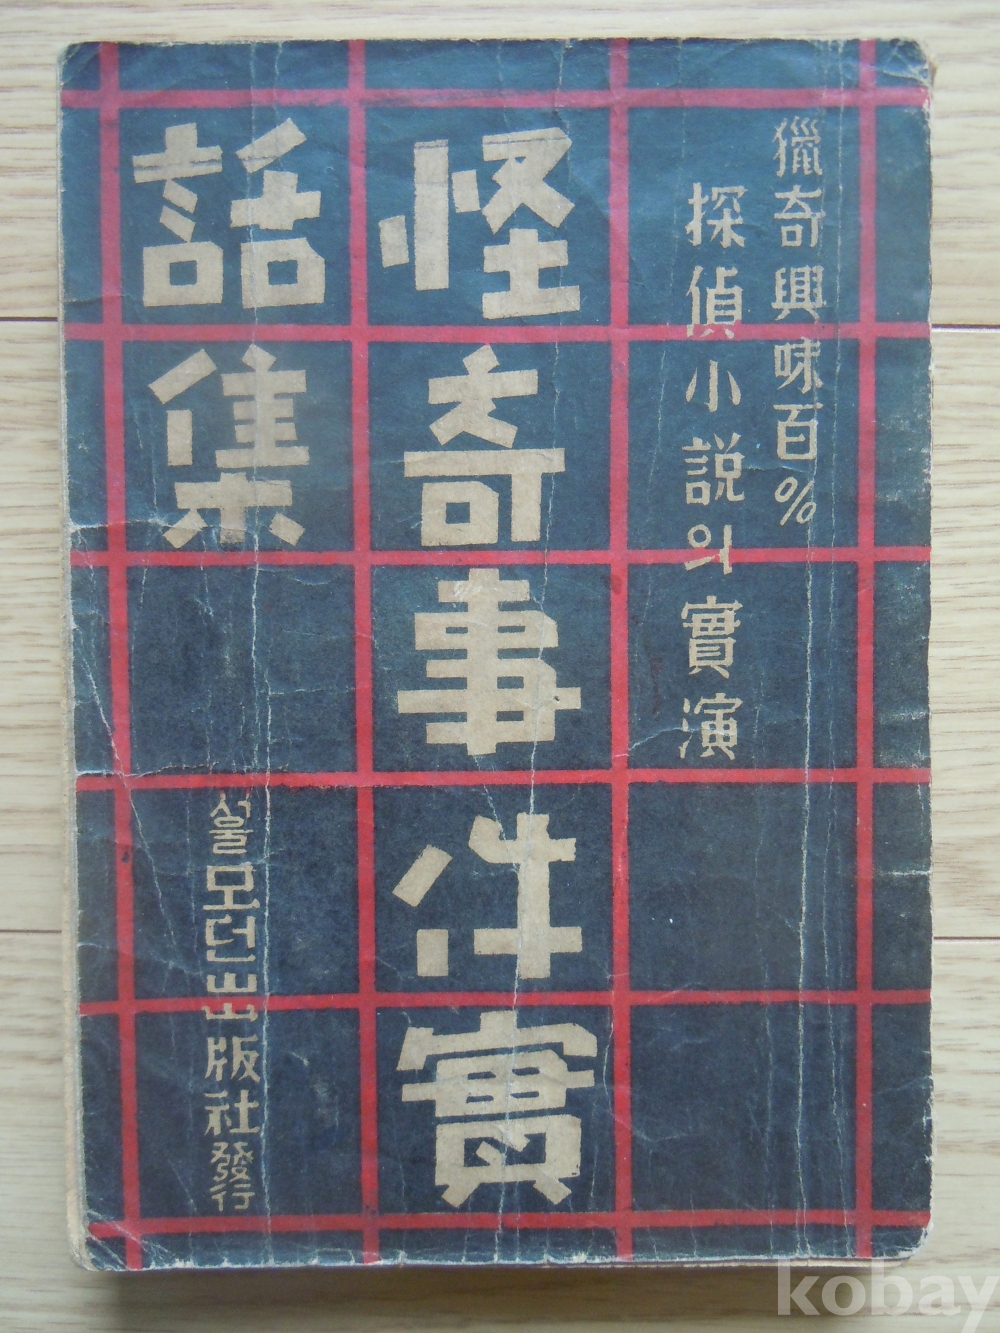 獵奇興味百%
探偵小說의實演
怪奇事件實
話集
서울모던出版社發行
kobay